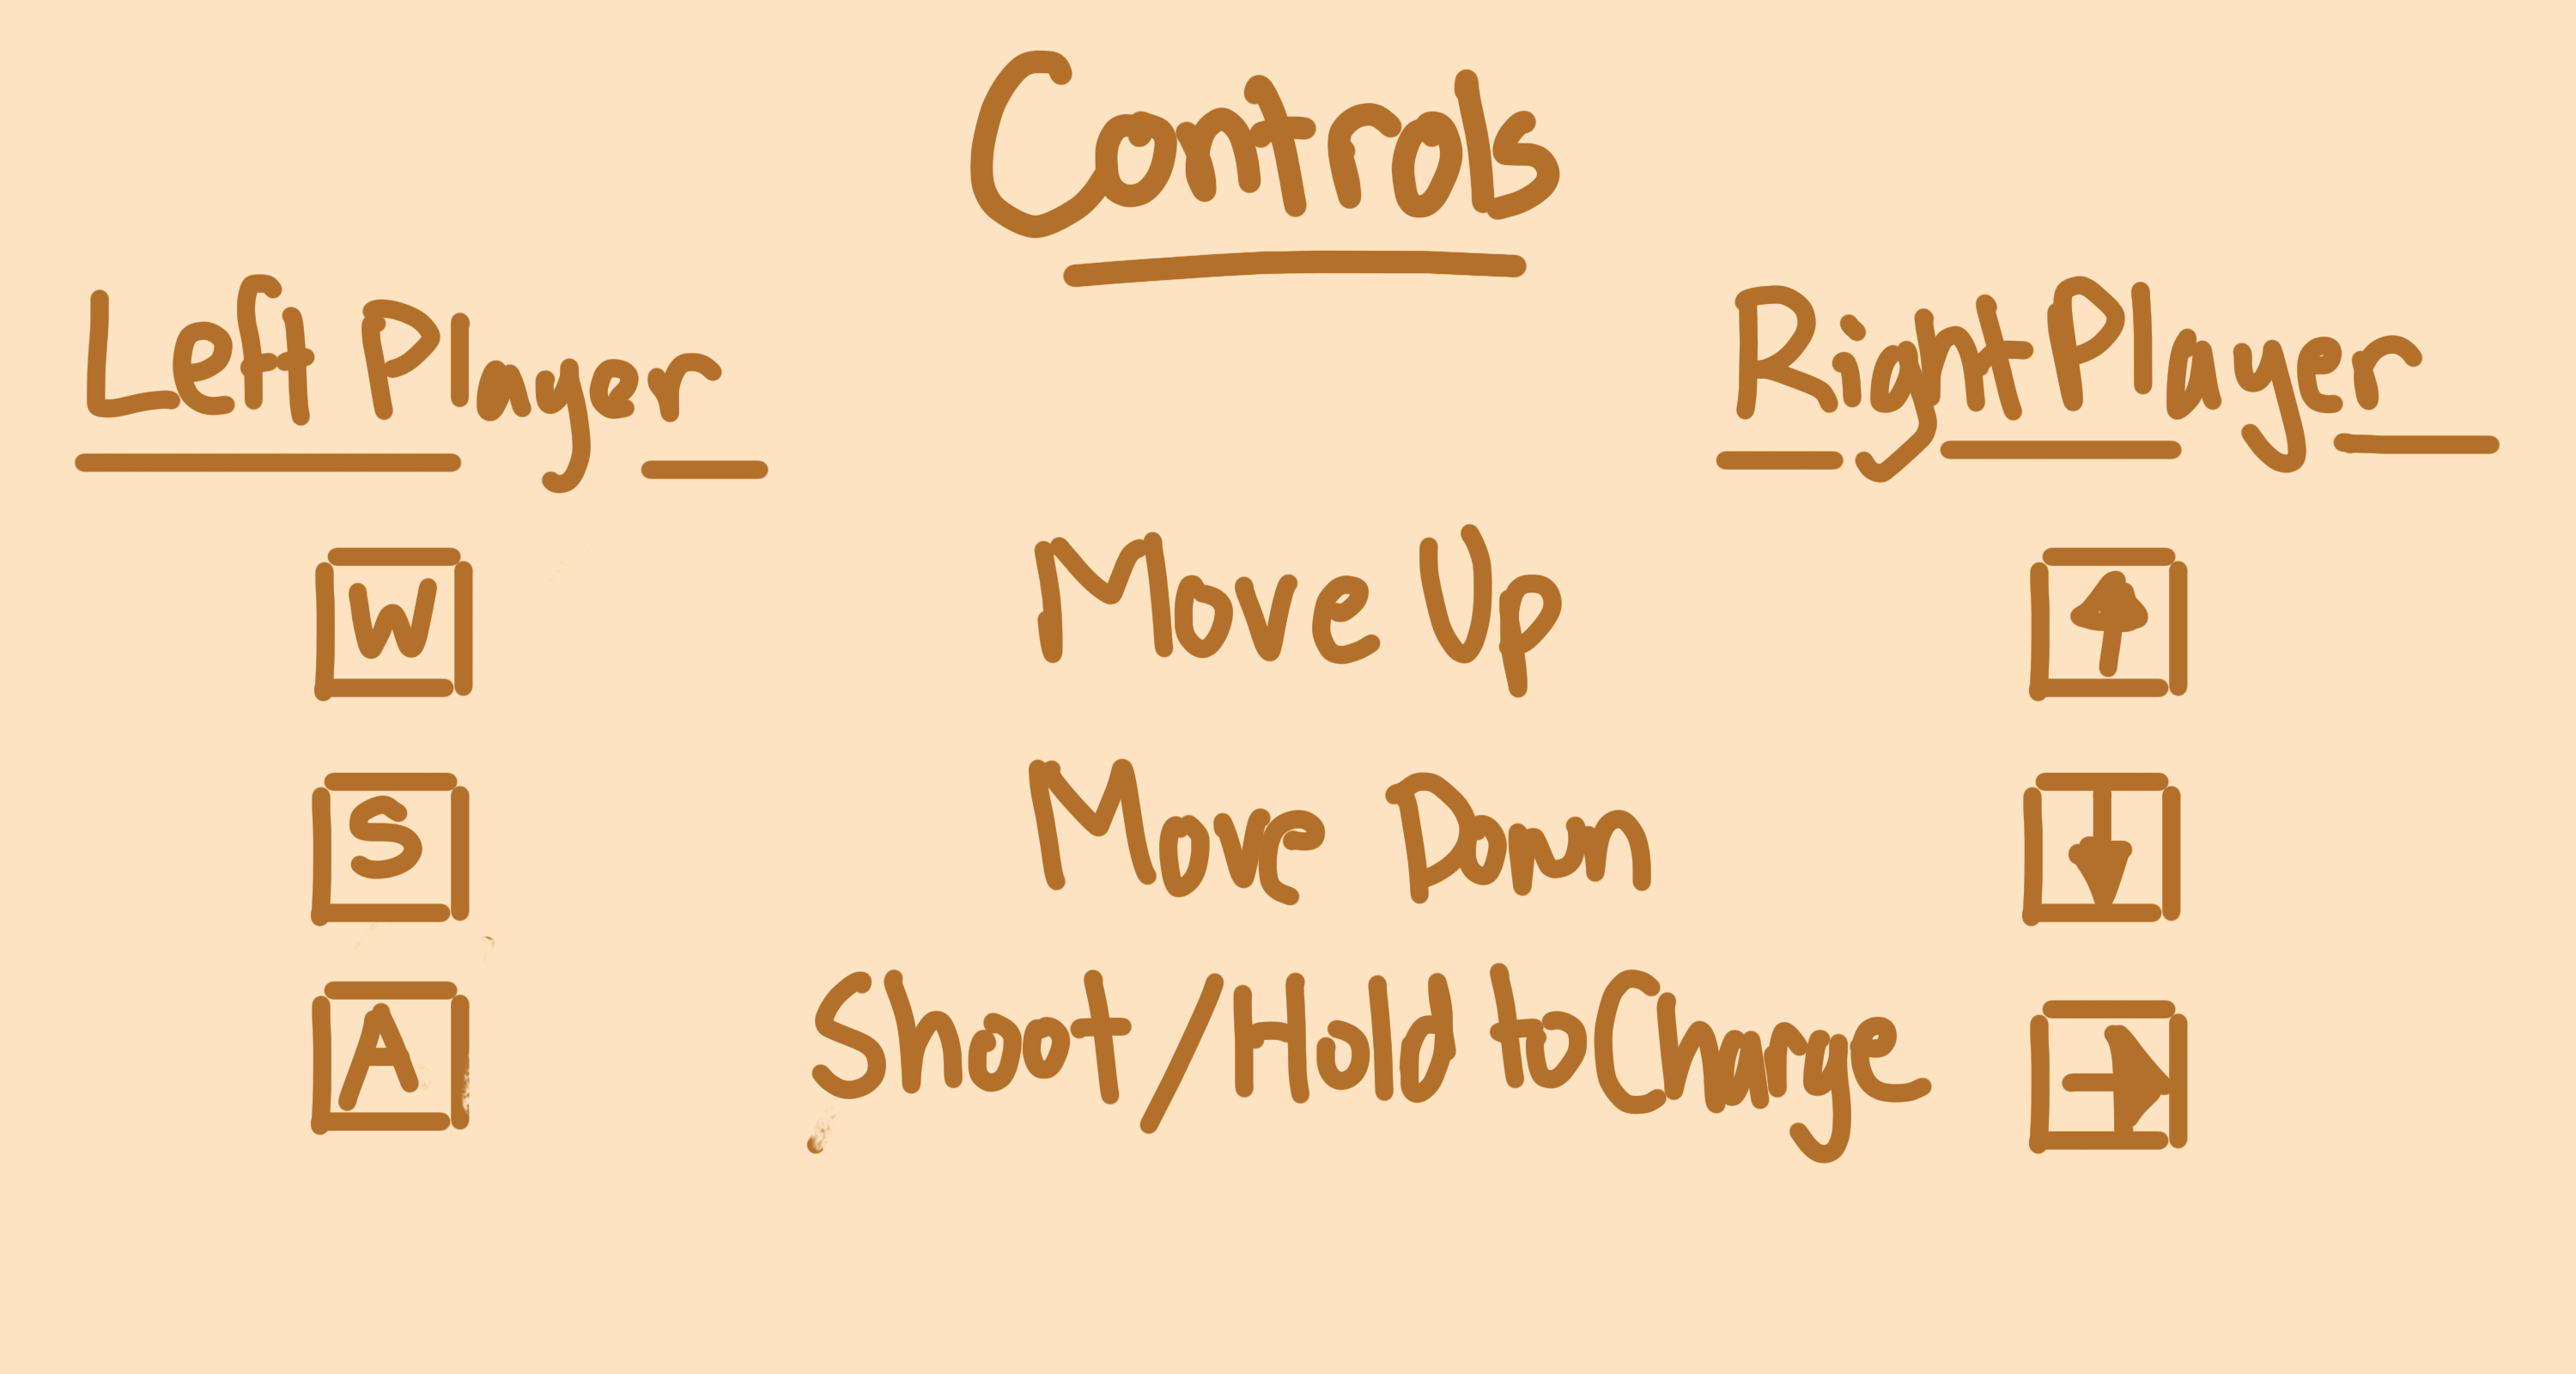 Controls
Left Player Right Player
W Move Up ↑
S Move Down ↓
A Shoot/Hold to Charge →